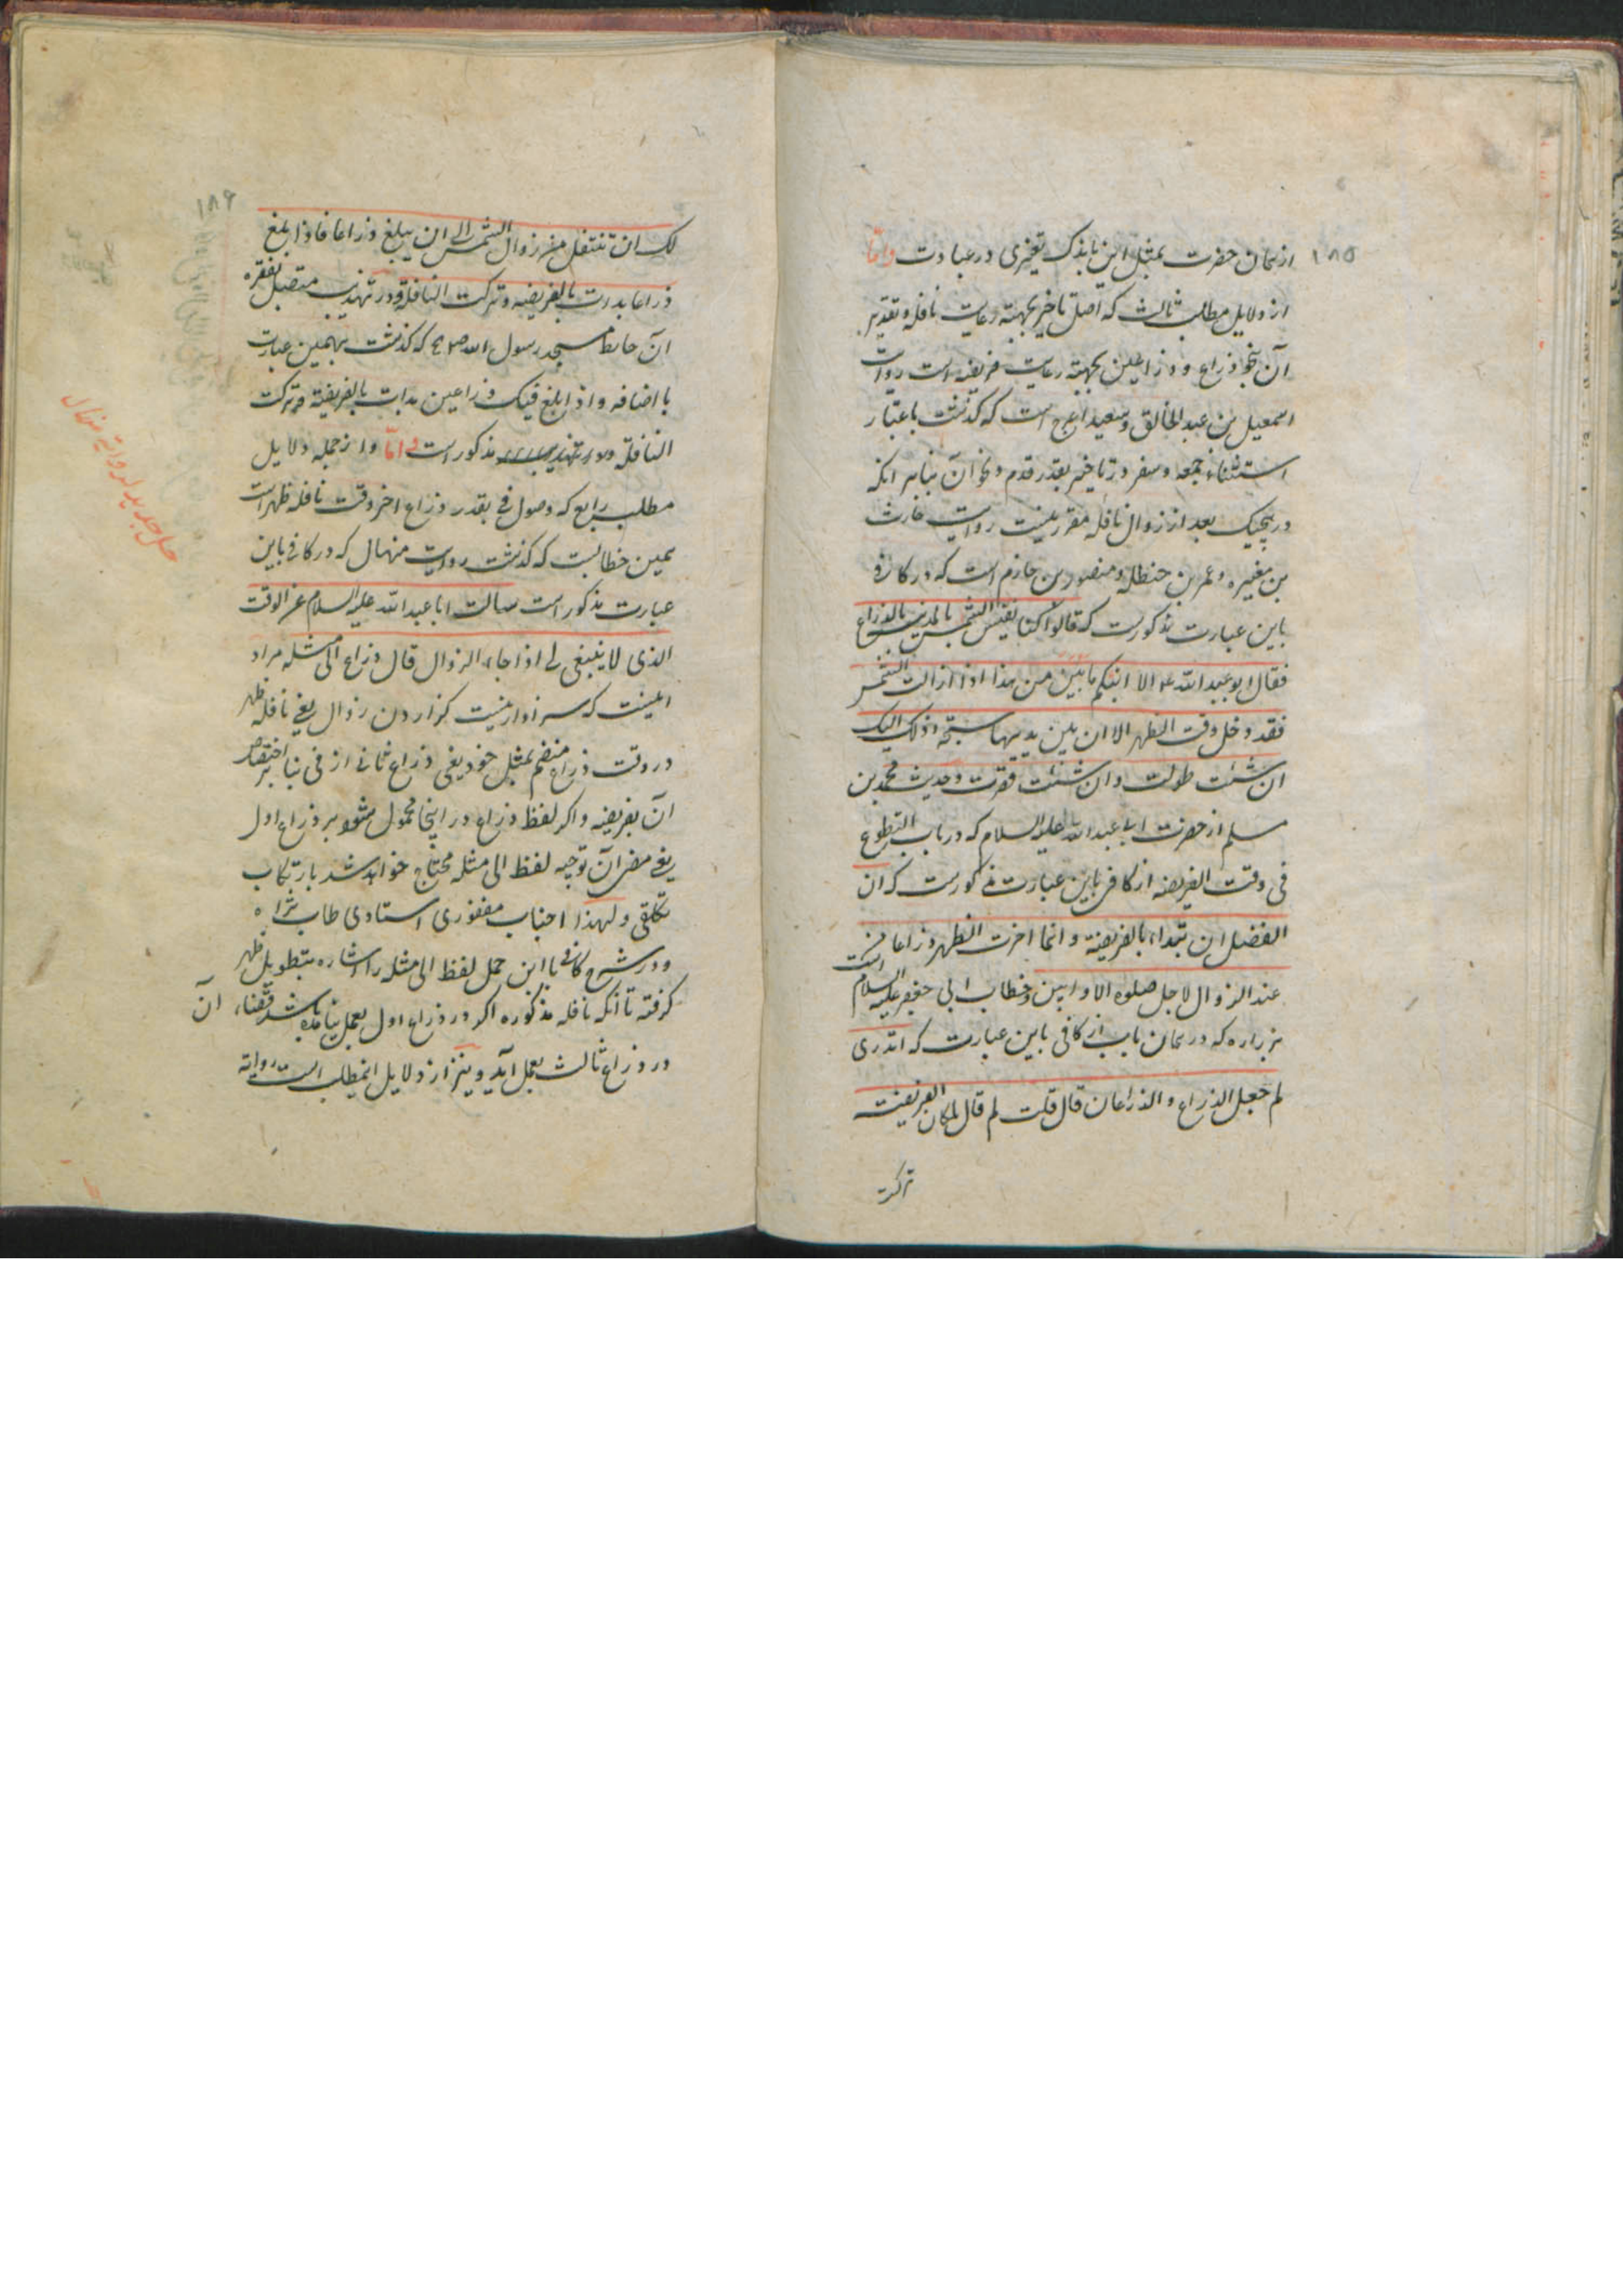 ١٨٥
از همان حضرت بمثل این باندک تغییری در عبارت و امّا
از دلایل مطلب ثالث که اصل تاخیر بجهته رعایت نافله و تقدیر
آن بنحو ذراع و ذراعین بجهته رعایت فریضه است روایت
اسمعیل بن عبد الخالق و سعید اعرج است که گذشت باعتبار
استثناء جمعه و سفر در تاخیر بقدر قدم و نحو آن بنابر انکه
در هیچیک بعد از زوال نافله مقرر نیست روایت حارث
بن مغیره و عمر بن حنظله و منصور بن حازم است که در کافی
باین عبارت مذکورست که قالوا کنا نقیس الشمس بالمدینه بالذراع
فقال ابو عبد الله ع الا انبئکم بابین من هذا اذا زالت الشمس
فقد دخل وقت الظهر الا ان بین یدیها سبحة و ذلک الیک
ان شئت طولت و ان شئت قصرت و حدیث محمد بن
مسلم از حضرت ابا عبد الله علیه السلام که در باب التطوع
فی وقت الفریضه از کافی باین عبارت مذکورست که ان
الفضل ان تبداء بالفریضة و انما اخرت الظهر ذراعا من
عند الزوال لاجل صلوة الاوابین و خطاب ابی جعفر علیه السلام است
بزراره که در همان باب از کافی باین عبارت که اتدری
لم جعل الذراع و الذراعان قال قلت لم قال لمکان الفریضة
ترکت
١٨٦
لک ان تتنفل من زوال الشمس الی ان یبلغ ذراعا فاذا بلغ
ذراعا بدات بالفریضه و ترکت النافلة و در تهذیب متصل بفقره
آن حائط مسجد رسول الله ص که گذشت بهمین عبارت
با اضافه و اذا بلغ فیئک ذراعین بدات بالفریضة و ترکت
النافلة مذکور است و امّا و از جمله دلایل
مطلب رابع که وصول فی بقدر ذراع اخر وقت نافله ظهر است
همین خطابست که گذشت روایت منهال که در کافی باین
عبارت مذکور است سالت ابا عبد الله علیه السلام عن الوقت
الذی لا ینبغی لی اذا جاء الزوال قال ذراع الی مثله مراد
اینست که سزاوار نیست گزاردن زوال یعنی نافله ظهر
در وقت ذراع منضم بمثل خود یعنی ذراع ثانی از فی بنا بر اختصاص
آن بفریضه و اگر لفظ ذراع در اینجا محمول شود بر ذراع اول
یعنی آن توجیه لفظ الی مثله محتاج خواهد شد بارتکاب
تکلفی و لهذا جناب مغفوری استادی طاب ثراه
در شرح کافی با این حمل لفظ الی مثله را اشاره بتطویل ظهر
گرفته تا آنکه نافله مذکوره اگر در ذراع اول بعمل نیامده باشد قضاء آن
در ذراع ثالث بعمل آید و نیز از دلایل اینمطلب است روایة
حل جدید لروایة منهال